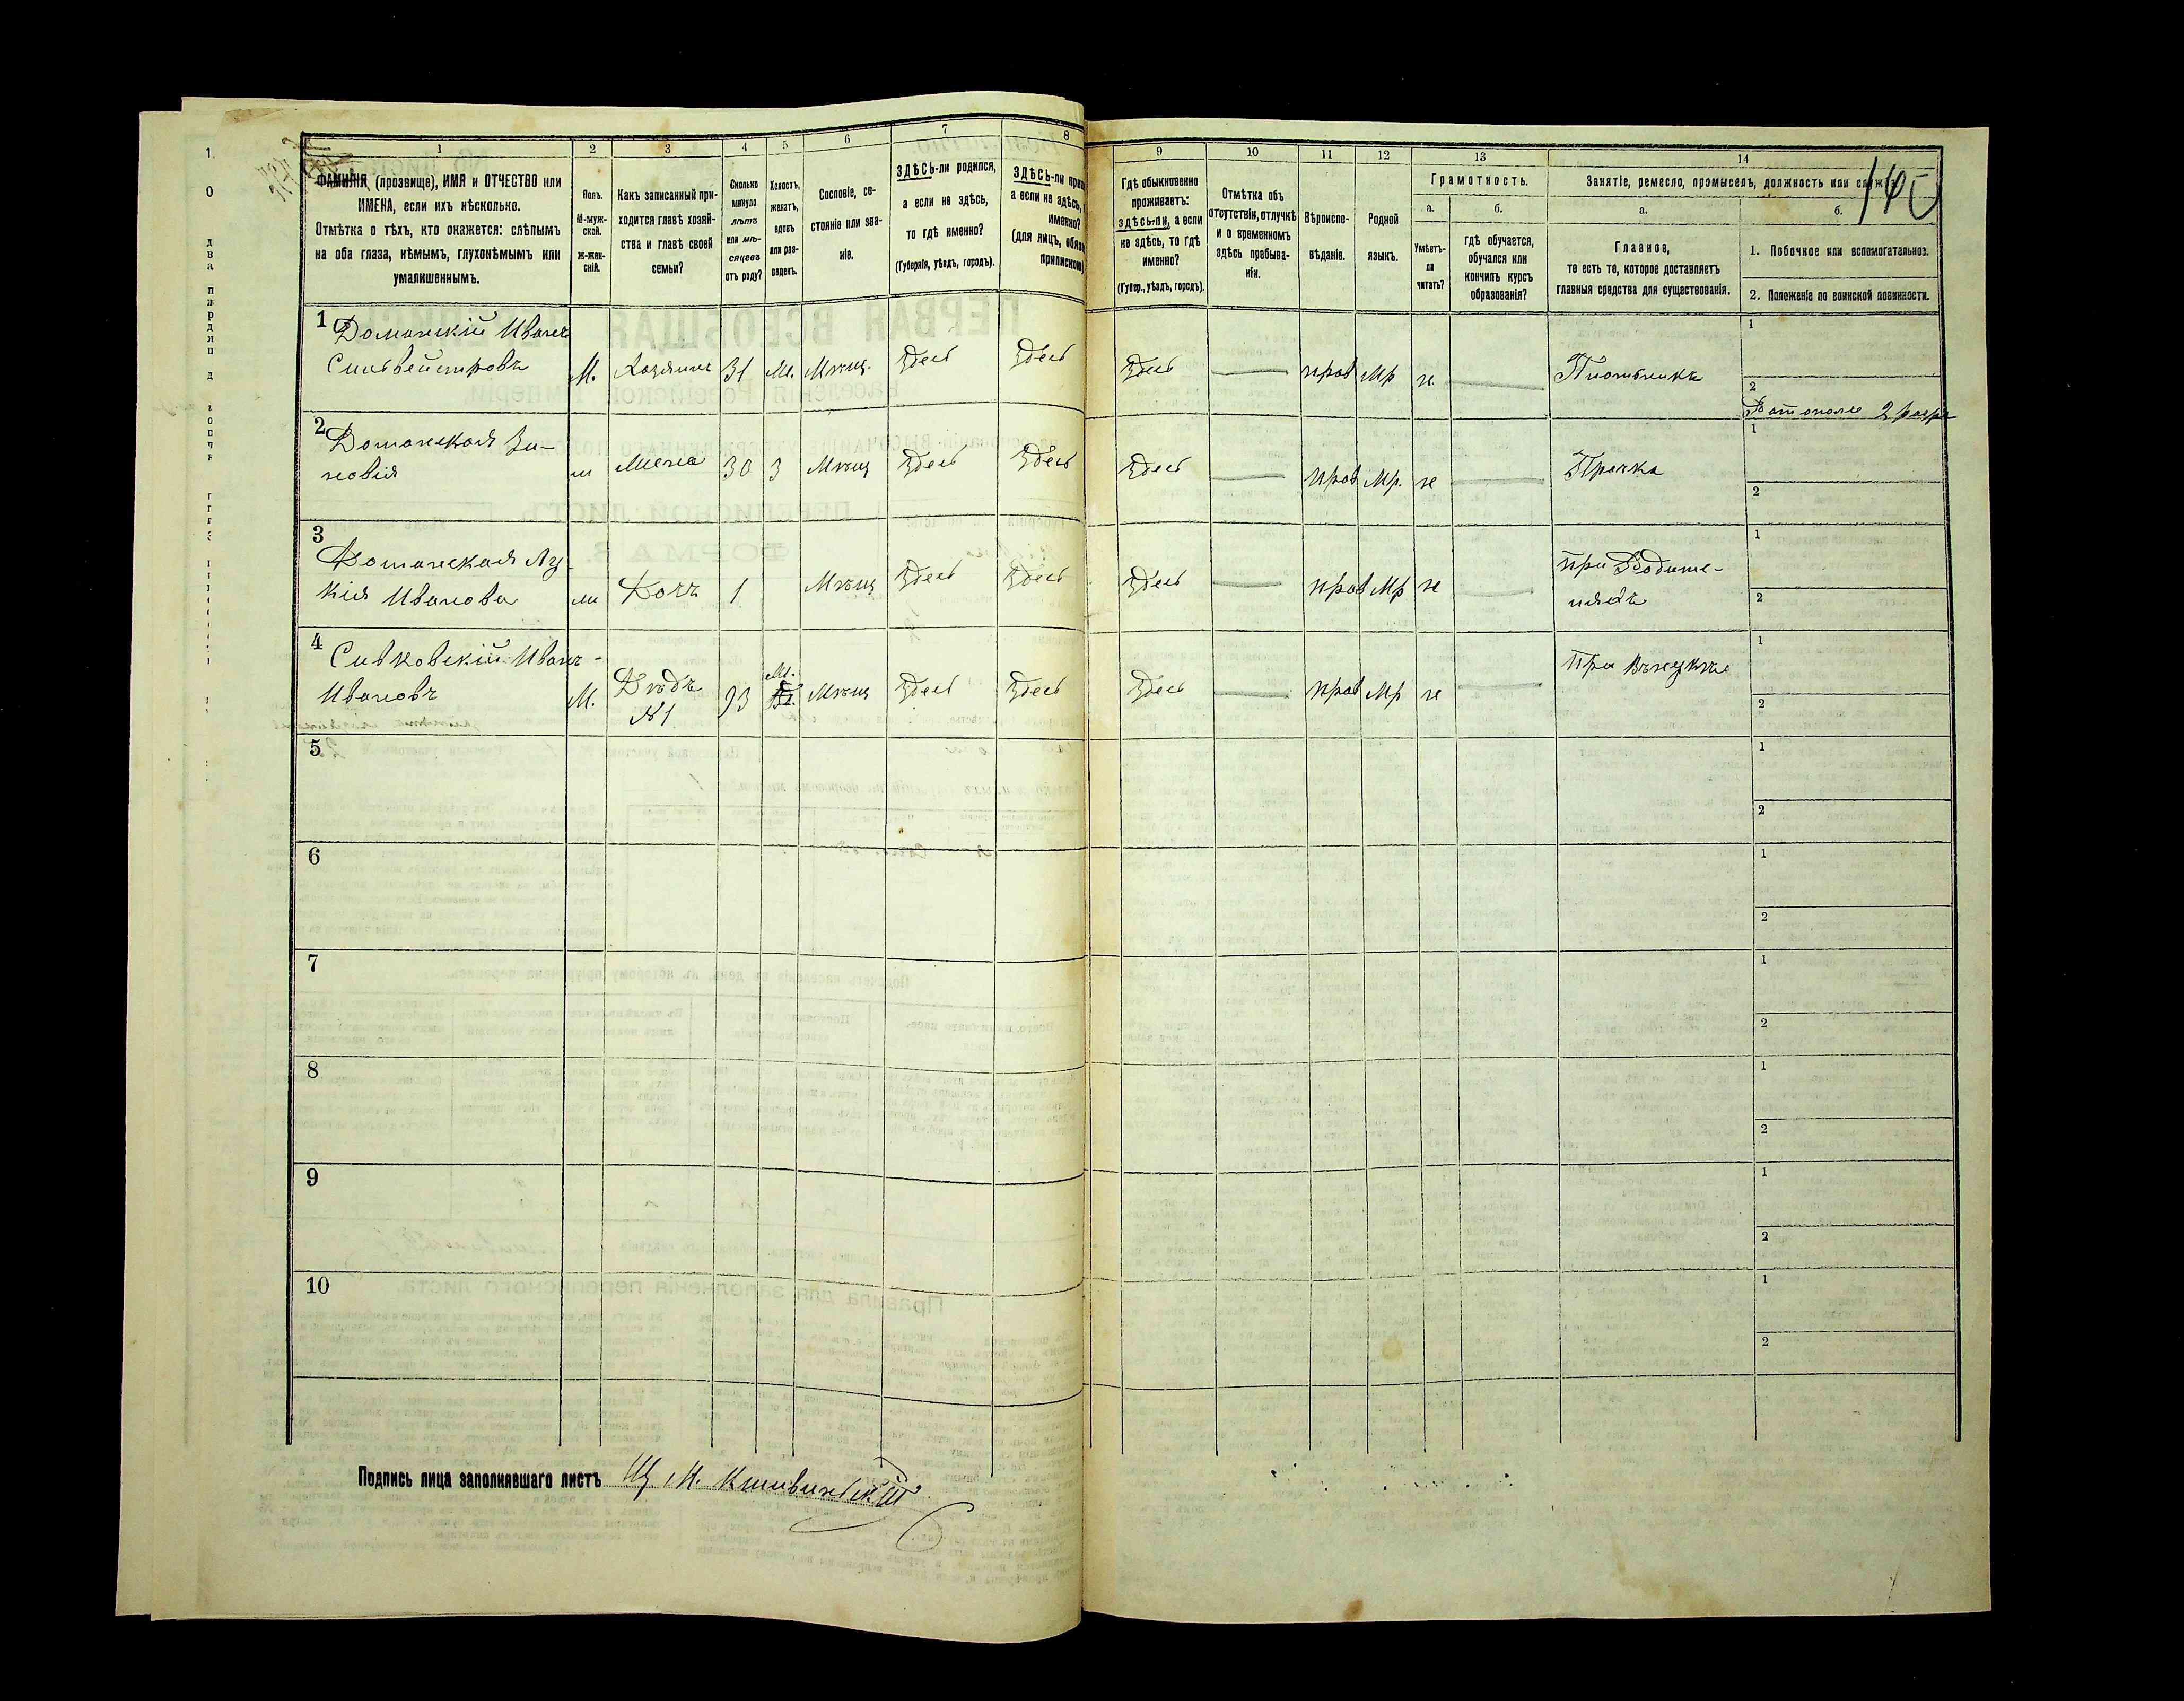 1 2 3 4 5 6 7 8
ФАМИЛІЯ, (прозвище), ИМЯ и ОТЧЕСТВО или
ИМЕНА, если ихъ нѣсколько.
Отмѣтка о тѣхъ, кто окажется: слѣпымъ
на оба глаза, нѣмымъ, глухонѣмымъ или
умалишеннымъ.
Полъ.
М-муж-
ской.
Ж-жен-
скій.
Какъ записанный при-
ходится главѣ хозяй-
ства и главѣ своей
семьи?
Сколько
минуло
лѣтъ
или мѣ-
сяцевъ
отъ роду?
Холостъ,
женатъ,
вдовъ
или раз-
веденъ.
Сословіе, со-
стояніе или зва-
ніе.
ЗДѢСЬ-ли родился,
а если не здѣсь,
то гдѣ именно?
(Губернія, уѣздъ, городъ).
ЗДѢСЬ-ли
а если не здѣсь,
именно?
(для лицъ,
припискою
9 10 11 12 13 14
Гдѣ обыкновенно
проживаетъ:
здѣсь-ли, а если
не здѣсь, то гдѣ
именно?
(Губер., уѣздъ, городъ).
Отмѣтка объ
отсутствіи, отлучкѣ
и о временномъ
здѣсь пребыва-
ніи.
Вѣроиспо-
вѣданіе.
Родной
языкъ.
Грамотность.
а.
Умѣетъ-
ли
читать?
б.
гдѣ обучается,
обучался или
кончилъ курсъ
образованія?
Занятіе, ремесло, промыселъ, должность или служба.
а.
Главное,
то есть то, которое доставляетъ
главныя средства для существованія.
б.
1. Побочное или вспомогательное.
2. Положеніе по воинской повинности.
1 Доманскій Иванъ
Сильвейстровъ М. Хозяинъ 31 Ж. Мѣщ. Здесь Здесь Здесь прав Мр н. Плотникъ
1
2 Ратополч 2 разр
2 Доманская Зи-
новія ж Жена 30 З Мѣщ Здесь Здесь Здесь прав Мр. не Прачка
1
2
3 Доманская Лу-
кія Иванова ж Дочъ 1 Мѣщ Здесь Здесь Здесь прав Мр не при Родите-
ляхъ
1
2
4 Сивковскій Иванъ
Ивановъ М. Дѣдъ
№1 93 Мѣщ Здесь Здесь Здесь прав Мр не При Внукѣ
1
2
5 1
2
6 1
2
7 1
2
8 1
2
9 1
2
10 1
2
Подпись лица заполнявшаго листъ